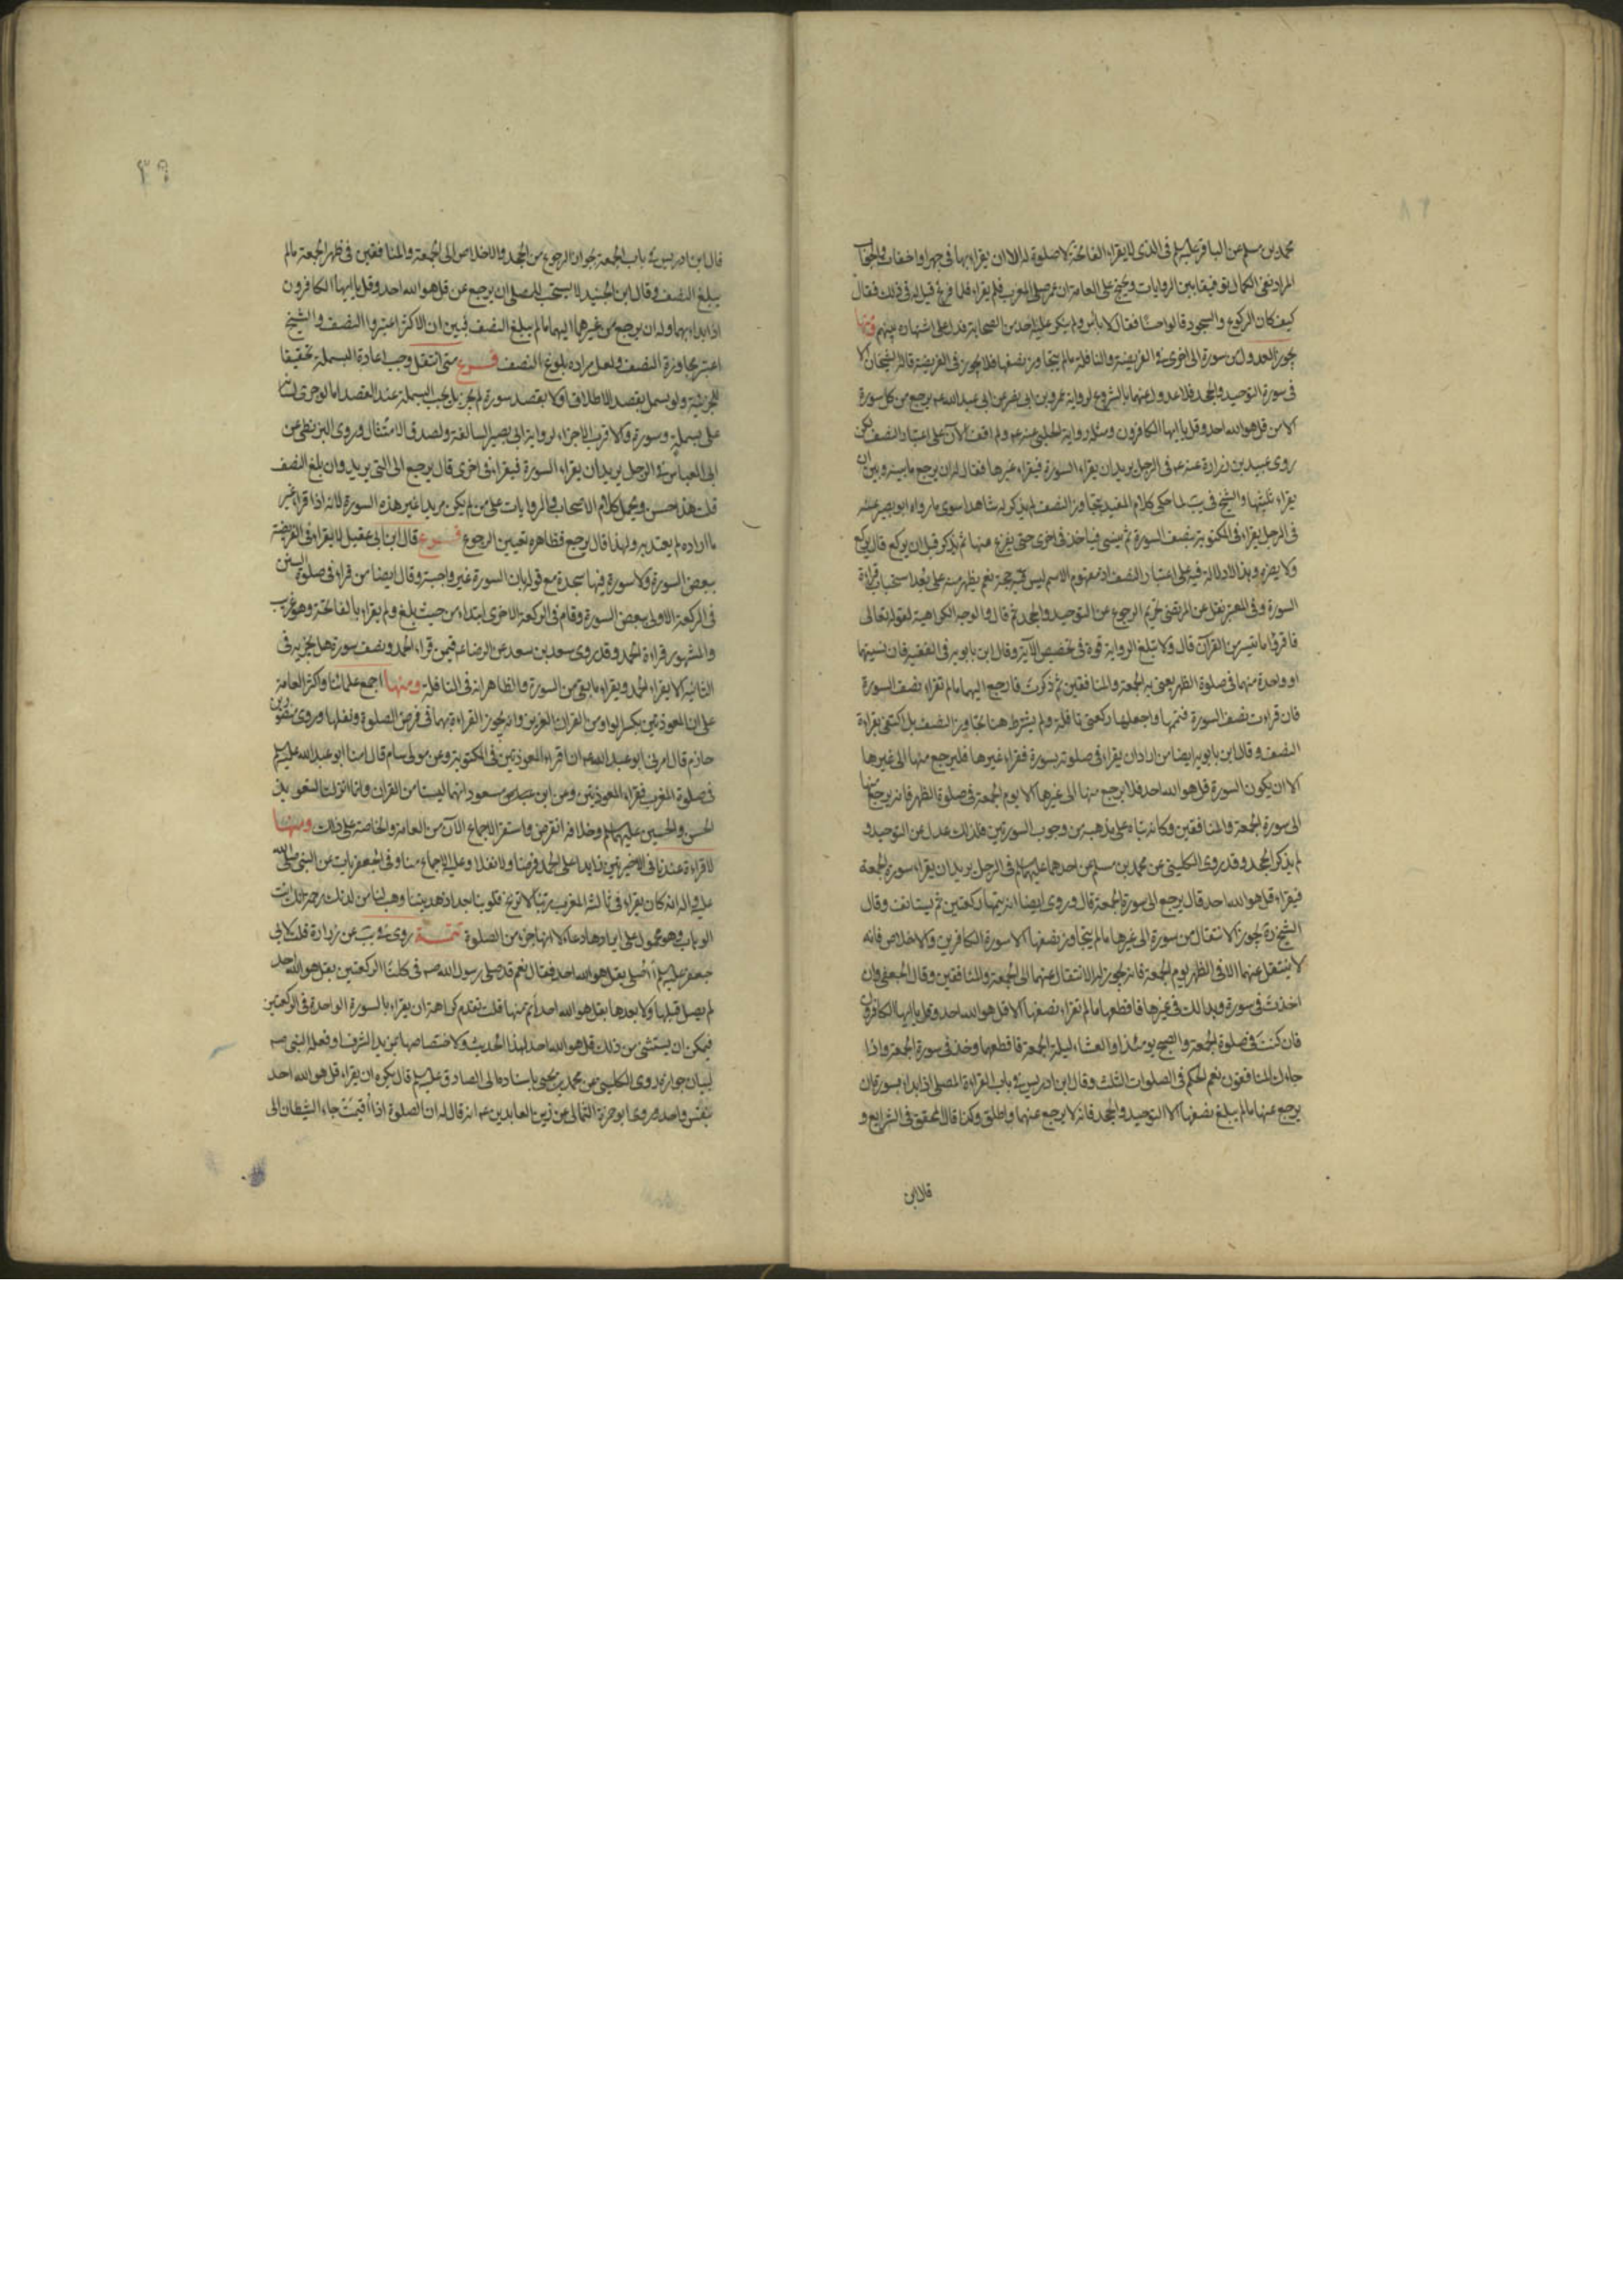 محمد بن مسلم عن الباقر عليه السلم في الذي لا يقراء الفاتحة لا صلوة له الا ان يقراء بها في جهر او اخفات والجواب
المراد نفي الكمال توفيقا بين الروايات ويحتج على العامة ان عمر صلى المغرب فلم يقراء فلما فرغ قيل له في ذلك فقال
كيف كان الركوع والسجود قالوا حسنا فقال لا باس ولم ينكر عليه احد من الصحابة فدل على اشتهاره بينهم ومنها
يجوز العدول من سورة الى اخرى في الفريضة والنافلة ما لم يتجاوز نصفها فلا يجوز في الفريضة قاله الشيخان الا
في سورة التوحيد والجحد فلا عدول عنهما بالشروع لرواية عمرو بن ابي نصر عن ابي عبد الله عم يرجع من كل سورة
الا من قل هو الله احد وقل يا ايها الكافرون ومثله رواية الحلبي عنه عم ولم اقف الآن على اعتبار النصف لكن
روى عبيد بن زرارة عنه عم في الرجل يريد ان يقراء السورة فيقراء غيرها فقال له ان يرجع ما بينه وبين ان
يقراء ثلثيها والشيخ في يب لما حكى كلام المفيد بتجاوز النصف لم يذكر له شاهدا سوى ما رواه ابو بصير عنه
في الرجل يقراء في المكتوبة بنصف السورة ثم ينسى فياخذ في اخرى حتى يفرغ منها ثم يذكر قبل ان يركع قال يركع
ولا يضره وهذا لا دلالة فيه على اعتبار النصف اذ مفهوم الاسم ليس فيه حجة نعم يظهر منه على بعد استحباب قراءة
السورة وفي المعتبر نقل عن المرتضى تحريم الرجوع عن التوحيد والجحد ثم قال والوجه الكراهية لقوله تعالى
فاقرؤا ما تيسر من القرآن قال ولا تبلغ الرواية قوة في تخصيص الآية وقال ابن بابويه في الفقيه فان نسيتها
او واحدة منهما في صلوة الظهر يعني به الجمعة والمنافقين ثم ذكرت فارجع اليهما ما لم تقراء نصف السورة
فان قرات نصف السورة فتمها واجعلها ركعتي نافلة ولم يشترط هنا تجاوز النصف بل اكتفى بقراءة
النصف وقال ابن بابويه ايضا من اراد ان يقراء في صلوته بسورة فقراء غيرها فليرجع منها الى غيرها
الا ان يكون السورة قل هو الله احد فلا يرجع منها الى غيرها الا يوم الجمعة في صلوة الظهر فانه يرجع منها
الى سورة الجمعة والمنافقين وكانه بناه على مذهبه من وجوب السورتين فلذلك عدل عن التوحيد و
لم يذكر الجحد وقد روى الكليني عن محمد بن مسلم عن احدهما عليهما السلم في الرجل يريد ان يقراء سورة الجمعة
فيقراء قل هو الله احد قال يرجع الى سورة الجمعة قال وروى ايضا انه يتمها ركعتين ثم يستانف وقال
الشيخ ره يجوز الانتقال من سورة الى غيرها ما لم يتجاوز نصفها الا سورة الكافرين والاخلاص فانه
لا ينتقل عنهما الا في الظهر يوم الجمعة فانه يجوز له الانتقال عنهما الى الجمعة والمنافقين وقال الجعفي وان
اخذت في سورة وبدا لك في غيرها فاقطعها ما لم تقراء نصفها الا قل هو الله احد وقل يا ايها الكافرون
فان كنت في صلوة الجمعة والصبح يومئذ او العشاء ليلة الجمعة فاقطعهما وخذ في سورة الجمعة واذا
جاءك المنافقون نعم الحكم في الصلوات الثلث وقال ابن ادريس في باب القراءة المصلي اذا بداء بسورتان
يرجع عنها ما لم يبلغ نصفها الا التوحيد والجحد فانه لا يرجع عنهما واطلق وكذا قال المحقق في الشرايع و
قال ابن
٣٩
قال ابن ادريس في باب الجمعة بجواز الرجوع من الجحد والاخلاص الى الجمعة والمنافقين في ظهر الجمعة ما لم
يبلغ النصف وقال ابن الجنيد لا يستحب للمصلي ان يرجع عن قل هو الله احد وقل يا ايها الكافرون
اذا ابتداء بهما وله ان يرجع عن غيرهما اليهما ما لم يبلغ النصف فتبين ان الاكثر اعتبروا النصف والشيخ
اعتبر مجاوزة النصف ولعل مراده بلوغ النصف فــرع متى انتقل وجب اعادة البسملة تحقيقا
للجزئية ولو بسمل بقصد الاطلاق او لا بقصد سورة لم يجز بل يجب البسملة عند القصد اما لو جرى لسانه
على بسملة وسورة فالاقرب الاجزاء لرواية ابي بصير السالفة ولصدق الامتثال وروى البزنطي عن
ابي العباس في الرجل يريد ان يقراء السورة فيقراء في اخرى قال يرجع الى التي يريد وان بلغ النصف
قلت هذا حسن ويحمل كلام الاصحاب والروايات على من لم يكن مريدا غير هذه السورة لانه اذا قراء غير
ما اراده لم يعتد به ولهذا قال يرجع فظاهره تعيين الرجوع فــرع قال ابن ابي عقيل لا يقراء في الفريضة
ببعض السورة ولا سورة فيها سجدة مع قوله بان السورة غير واجبة وقال ايضا من قراء في صلوة السنن
في الركعة الاولى ببعض السورة وقام في الركعة الاخرى ابتداء من حيث بلغ ولم يقراء بالفاتحة وهو غريب
والمشهور قراءة الحمد وقد روى سعد بن سعد عن الرضا عم فيمن قراء الحمد ونصف سورة هل يجزيه في
الثانية الا يقراء الحمد ويقراء ما بقي من السورة والظاهر انه في النافلة ومنهــا اجمع علمائنا واكثر العامة
على ان المعوذتين بكسر الواو من القرآن العزيز وانه يجوز القراءة بهما في فرض الصلوة ونفلها وروى منصور بن
حازم قال امرني ابو عبد الله عم ان اقراء المعوذتين في المكتوبة وعن مولى سام قال امنا ابو عبد الله عليه السلم
في صلوة المغرب فقراء المعوذتين وعن ابن مسعود انهما ليستا من القرآن وانما انزلتا لتعويذ
الحسن والحسين عليهما السلم وخلافه انقرض واستقر الاجماع الآن من العامة والخاصة على ذلك ومنهــا
لا قراءة عندنا في الاخيرتين زايدا على الحمد فرضا ولا نفلا وعليه الاجماع منا وفي الجعفريات عن النبي صلى الله
عليه واله انه كان يقراء في ثالثة المغرب ربنا لا تزغ قلوبنا بعد اذ هديتنا وهب لنا من لدنك رحمة انك انت
الوهاب وهو محمول على ايرادها دعاء لا انها جزء من الصلوة تتمــة روى في يب عن زرارة قلت لابي
جعفر عليه السلم أ أصلي بقل هو الله احد فقال نعم قد صلى رسول الله صم في كلتا الركعتين بقل هو الله احد
لم يصل قبلها ولا بعدها بقل هو الله احد أتم منها قلت تقدم كراهة ان يقراء بالسورة الواحدة في الركعتين
فيمكن ان يستثنى من ذلك قل هو الله احد لهذا الحديث ولاختصاصها بمزيد الشرف او فعله النبي صم
لبيان جوازه وروى الكليني عن محمد بن يحيى باسناده الى الصادق عليه السلم قال يكره ان يقراء قل هو الله احد
بنفس واحد وروى ابو حمزة الثمالي عن زين العابدين عم انه قال له ان الصلوة اذا أقيمت جاء الشيطان الى